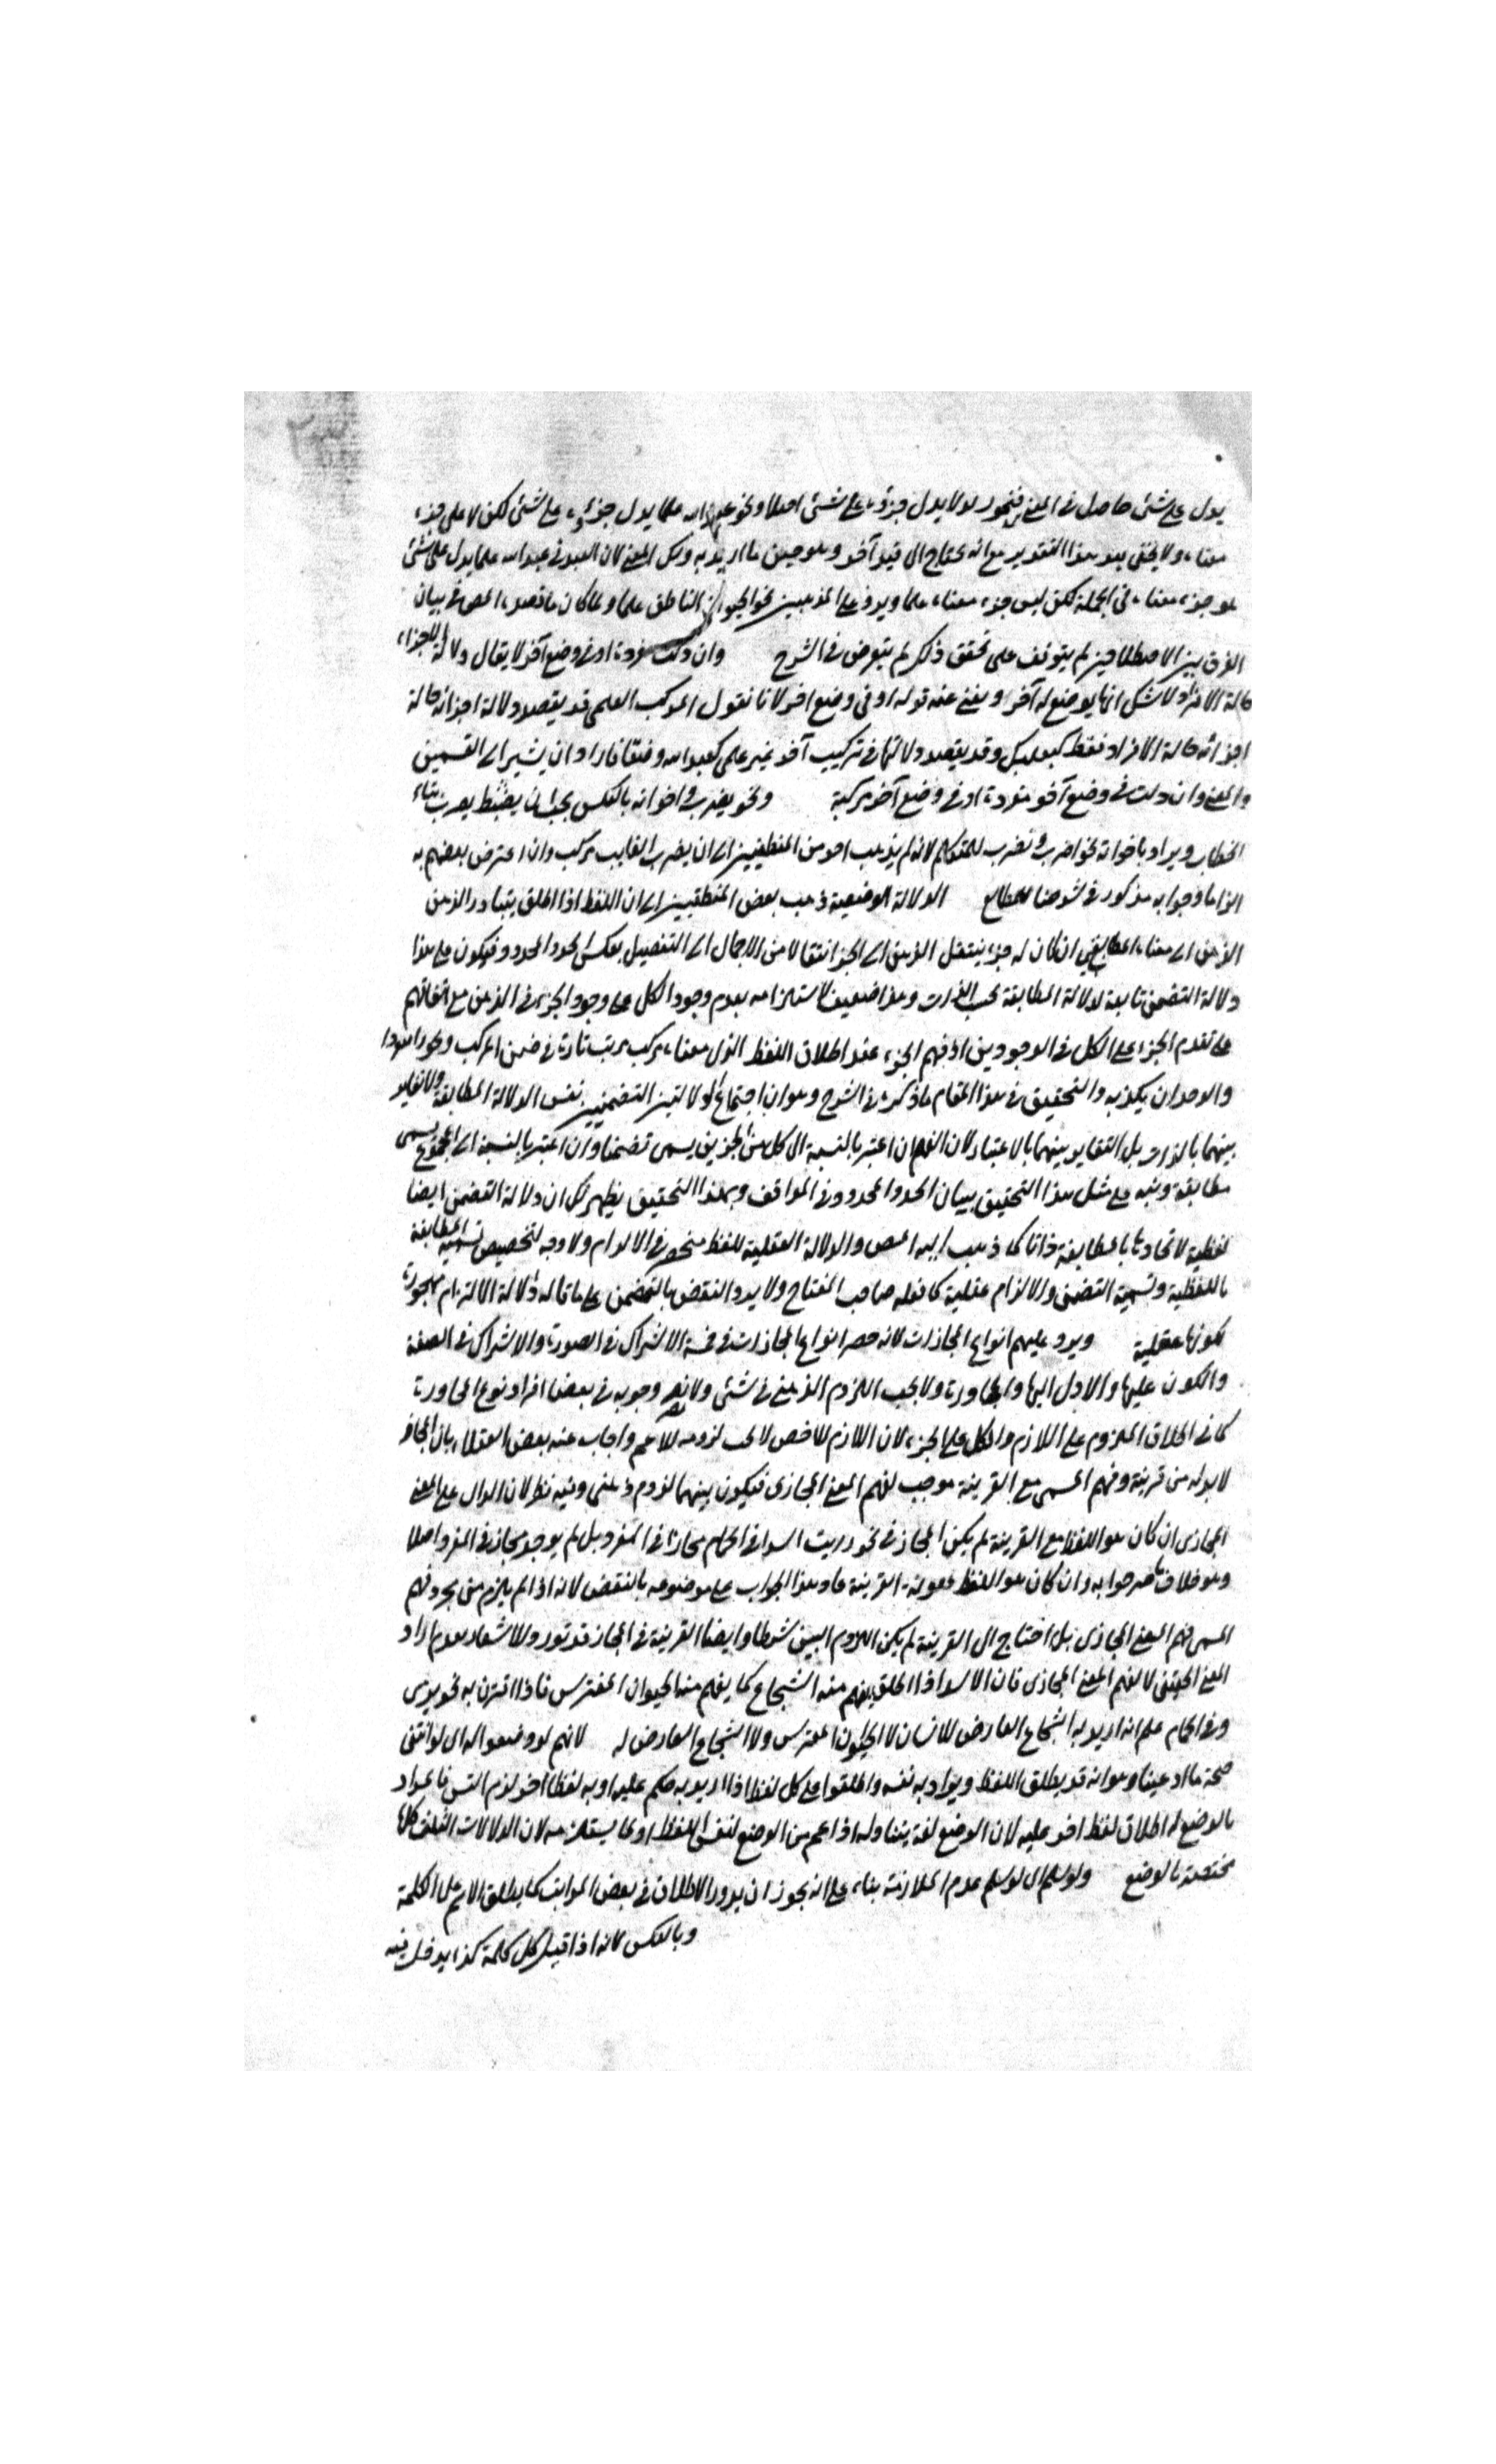 يدل على شئ حاصل في المعنى فنحو لا يدل جزؤه على شئ اصلا ونحو عبد الله علما يدل جزؤه على شئ لكن لا على جزء
معناه ولا يخفى بعد هذا التقدير مع انه يحتاج الى قيد آخر وهو حين ما اريد به ذلك المعنى لان العبد في عبد الله علما يدل على شئ
هو جزء معناه في الجملة لكن ليس جزء معناه علما ويرد على المذهبين نحو الحيوان الناطق علما ولما كان ما قصده المص في بيان
الفرق بين الاصطلاحين لم يتوقف على تحقق ذلك لم يتعرض في الشرح وان دلت مفردة او في وضع آخر لا يقال دلالة الاجزاء
حالة الافراد لا شك انها بوضع له آخر ويغنى عنه قوله او في وضع اخر لانا نقول المركب العلمي قد يقصد دلالة اجزائه حالة
اجزائه حالة الافراد فقط كبعلبك وقد يقصد دلالتها في تركيب آخر غير علمي كعبد الله وضعا فاراد ان يشير الى القسمين
والمعنى وان دلت في وضع آخر مفردة او في وضع آخر مركبة ونحو يضرب واخواته بالعكس يجب ان يضبط يضرب بتاء
الخطاب ويراد باخواته نحو اضرب ونضرب للمتكلم لانه لم يذهب احد من المنطقيين الى ان يضرب الغايب مركب وان اعترض بعضهم به
الزاما وجوابه مذكور في شرحنا للمطالع الدلالة الوضعية ذهب بعض المنطقيين الى ان اللفظ اذا اطلق يتبادر الذهن
الذهن الى معناه المطابقي ان كان له جزء ينتقل الذهن الى الجزء انتقالا من الاجمال الى التفصيل بعكس الحد والمحدود فيكون على هذا
دلالة التضمن تابعة لدلالة المطابقة بحسب الذات وهذا ضعيف لاستلزامه بعدم وجود الكل على وجود الجزء في الذهن مع اتفاقهم
على تقدم الجزء على الكل في الوجودين اذ فهم الجزء عند اطلاق اللفظ الذي معناه مركب مرتب تارة في ضمن المركب
والوجدان يكذبه والتحقيق في هذا المقام ما ذكره في الشرح وهو ان اجتماع الدلالتين التضمنيتين نفس الدلالة المطابقة ولا تغاير
بينهما بالذات بل التغاير بينهما بالاعتبار لان الفهم ان اعتبر بالنسبة الى كل من الجزئين يسمى تضمنا وان اعتبر بالنسبة الى المجموع يسمى
مطابقة ونبه على مثل هذا التحقيق ببيان الحد والمحدود في المواقف وبهذا التحقيق يظهر لك ان دلالة التضمن ايضا
لفظية لاتحادها بالمطابقة ذاتا كما ذهب اليه المص والدلالة العقلية للفظ منحصر في الالتزام ولا وجه لتخصيص تسمية المطابقة
باللفظية وتسمية التضمن والالتزام عقلية كما فعله صاحب المفتاح ولا يرد النقض بالتضمن على ما قاله دلالة الالتزام مهجورة
لكونها عقلية ويرد عليهم انواع المجازات لانه حصر انواع المجازات في خمسة الاشتراك في الصورة والاشتراك في الصفة
والكون عليها والاول اليها والمجاورة ولا يجب اللزوم الذهني في شئ ولا وجوبه في بعض افراد نوع المجاورة
كما في اطلاق الملزوم على اللازم والكل على الجزء لان اللازم للاخص لا يجب لزومه للاعم واجاب عنه بعض العقلاء بان المجاز
لا بد له من قرينة وفهم المسمى مع القرينة موجب لفهم المعنى المجازي فيكون بينهما لزوم ذهني وفيه نظر لان الدال على المعنى
المجازي ان كان هو اللفظ مع القرينة لم يكن المجاز في نحو رايت اسدا في الحمام مجازا في المفرد بل لم يوجد مجاز في المفرد اصلا
وهو خلاف ما صرحوا به وان كان هو اللفظ بمعونة القرينة عاد هذا الجواب على موضوعه بالنقض لانه اذا لم يلزم من مجرد فهم
المسمى فهم المعنى المجازي بل احتاج الى القرينة لم يكن اللزوم البين شرطا وايضا القرينة في المجاز قد تورد للاشعار بعدم اراد
المعنى الحقيقي لا لفهم المعنى المجازي فان الاسد اذا اطلق يفهم منه الشجاع كما يفهم منه الحيوان المفترس فاذا اقترن به نحو يرمى
وفي الحمام علم انه اريد به الشجاع العارض للانسان لا الحيوان المفترس ولا الشجاع العارض له لانهم لو وضعوا له اي لو انتفى
صحة ما ادعينا وهو انه قد يطلق اللفظ ويراد به نفسه واطلقوا على كل لفظ اذا اريد به حكم عليه او به لفظا اخر لزم التس فالمراد
بالوضع له اطلاق لفظ اخر عليه لان الوضع لغة يتناوله اذ اعم من الوضع لنفس اللفظ او لما يستلزمه لان الدلالات الثلث كلها
مختصة بالوضع ولو سلم اي لو سلم عدم الملازمة بناء على انه يجوز ان يدور الاطلاق في بعض المراتب كما يطلق الاسم على الكلمة
وبالعكس لانه اذا قيل كل كلمة كذا يدخل فيه